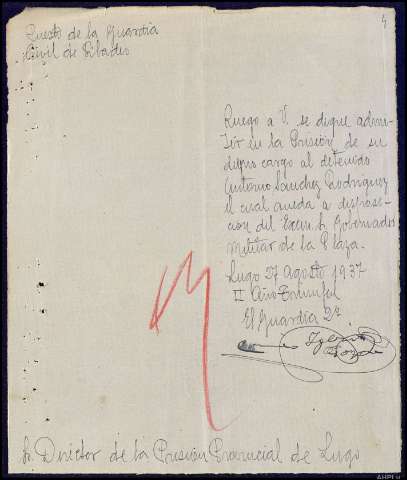 4
Puesto de la Guardia
Civil de Ribadeo
Ruego a V. se digne admi-
tir en la Prisión de su
digno cargo al detenido
Antonio Sanchez Rodriguez
el cual queda a disposi-
cion del Excm. Sr. Gobernador
Militar de la Plaza.
Lugo 27 agosto 1937
II Año Triunfal
El Guardia 2º.
Sr. Director de la Prisión Provincial de Lugo